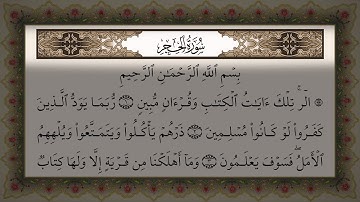 سُورَةُ الحِجْرِ
بِسْمِ ٱللَّهِ ٱلرَّحْمَٰنِ ٱلرَّحِيمِ
الٓرۚ تِلْكَ ءَايَٰتُ ٱلْكِتَٰبِ وَقُرْءَانٍ مُّبِينٍ رُّبَمَا يَوَدُّ ٱلَّذِينَ
كَفَرُوا۟ لَوْ كَانُوا۟ مُسْلِمِينَ ذَرْهُمْ يَأْكُلُوا۟ وَيَتَمَتَّعُوا۟ وَيُلْهِهِمُ
ٱلْأَمَلُۖ فَسَوْفَ يَعْلَمُونَ وَمَآ أَهْلَكْنَا مِن قَرْيَةٍ إِلَّا وَلَهَا كِتَابٌ